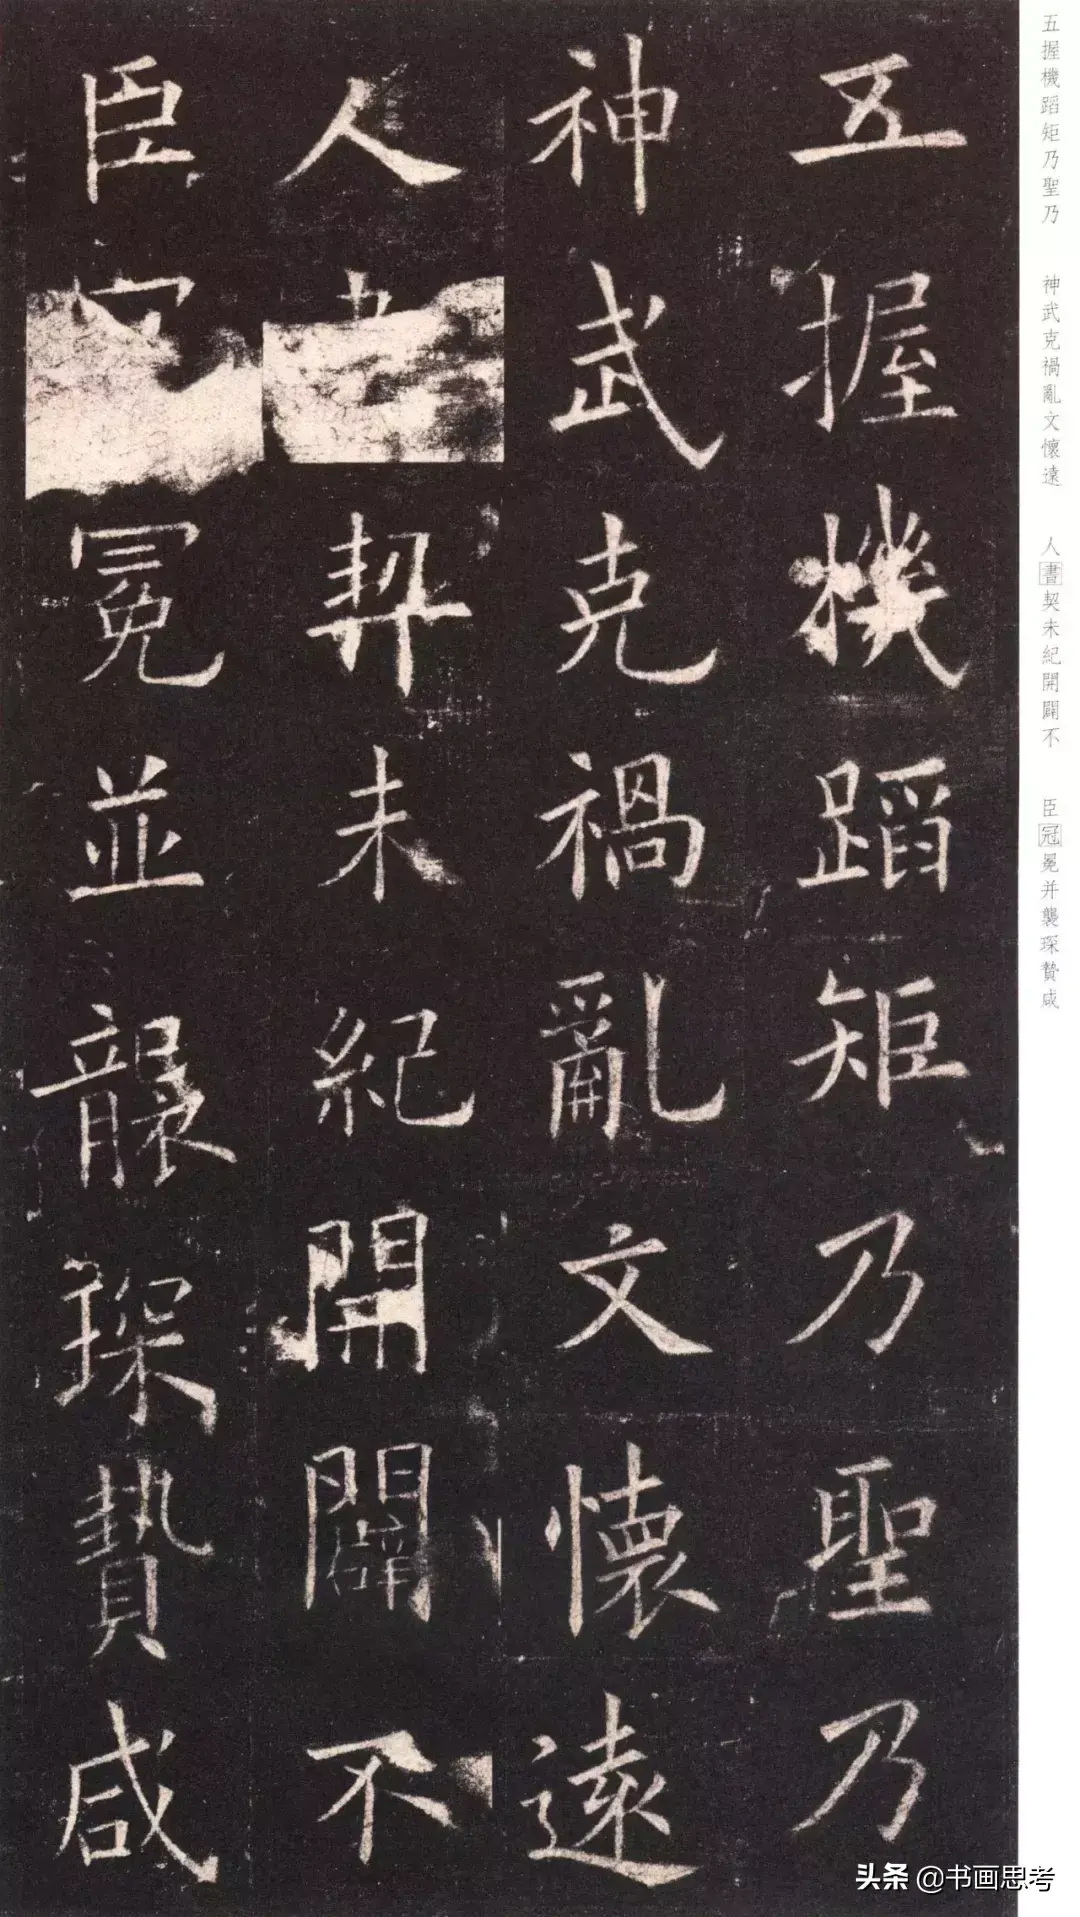 五握機蹈矩乃聖乃
神武克禍亂文懷遠
人契未紀開闢不
臣冕並襲琛贄咸
五握機蹈矩乃聖乃
神武克禍亂文懷遠
人書契未紀開闢不
臣冠冕并襲琛贄咸
头条 @书画思考